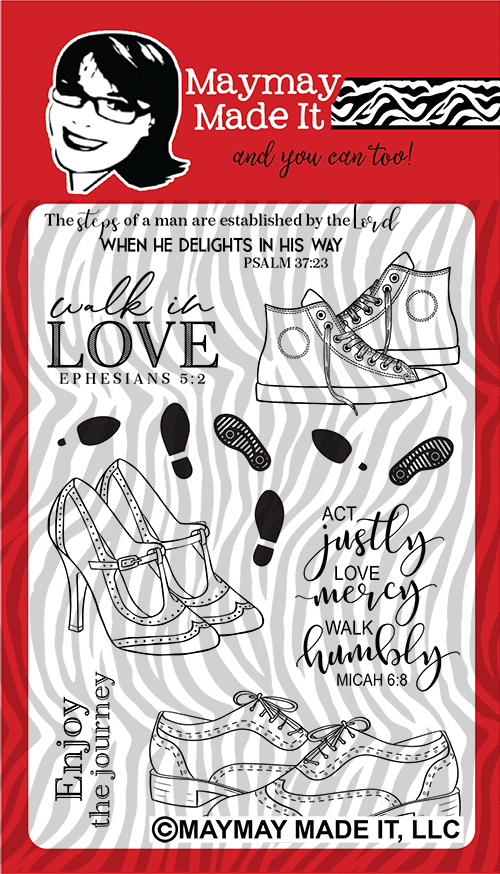 Maymay
Made It
and you can too!
The steps of a man are established by the Lord
WHEN HE DELIGHTS IN HIS WAY
PSALM 37:23
walk in
LOVE
EPHESIANS 5:2
ACT
justly
LOVE
mercy
WALK
humbly
MICAH 6:8
Enjoy
the journey
©MAYMAY MADE IT, LLC